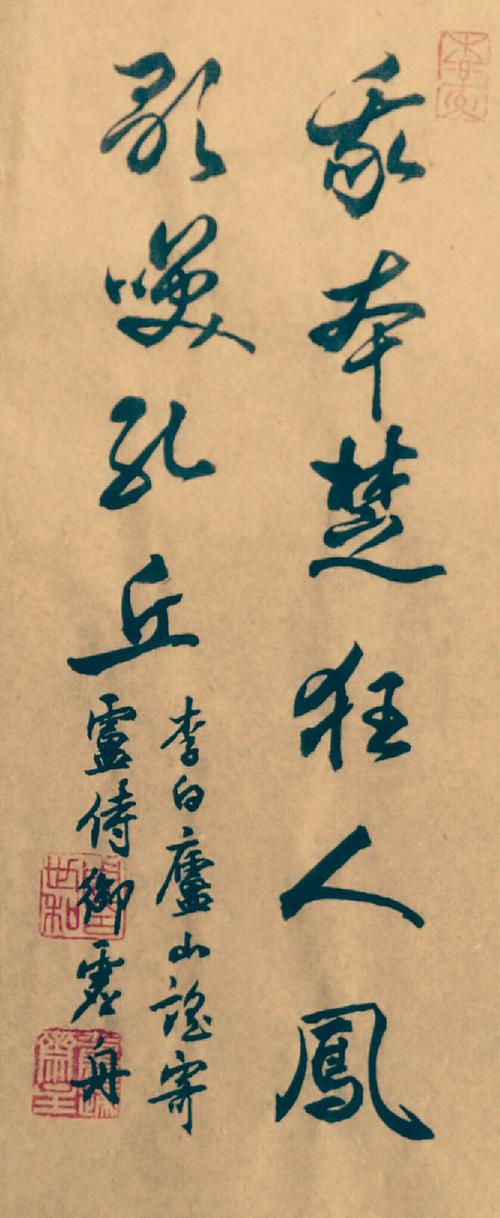 我本楚狂人鳳
歌笑孔丘
李白廬山謠寄
盧侍御虛舟